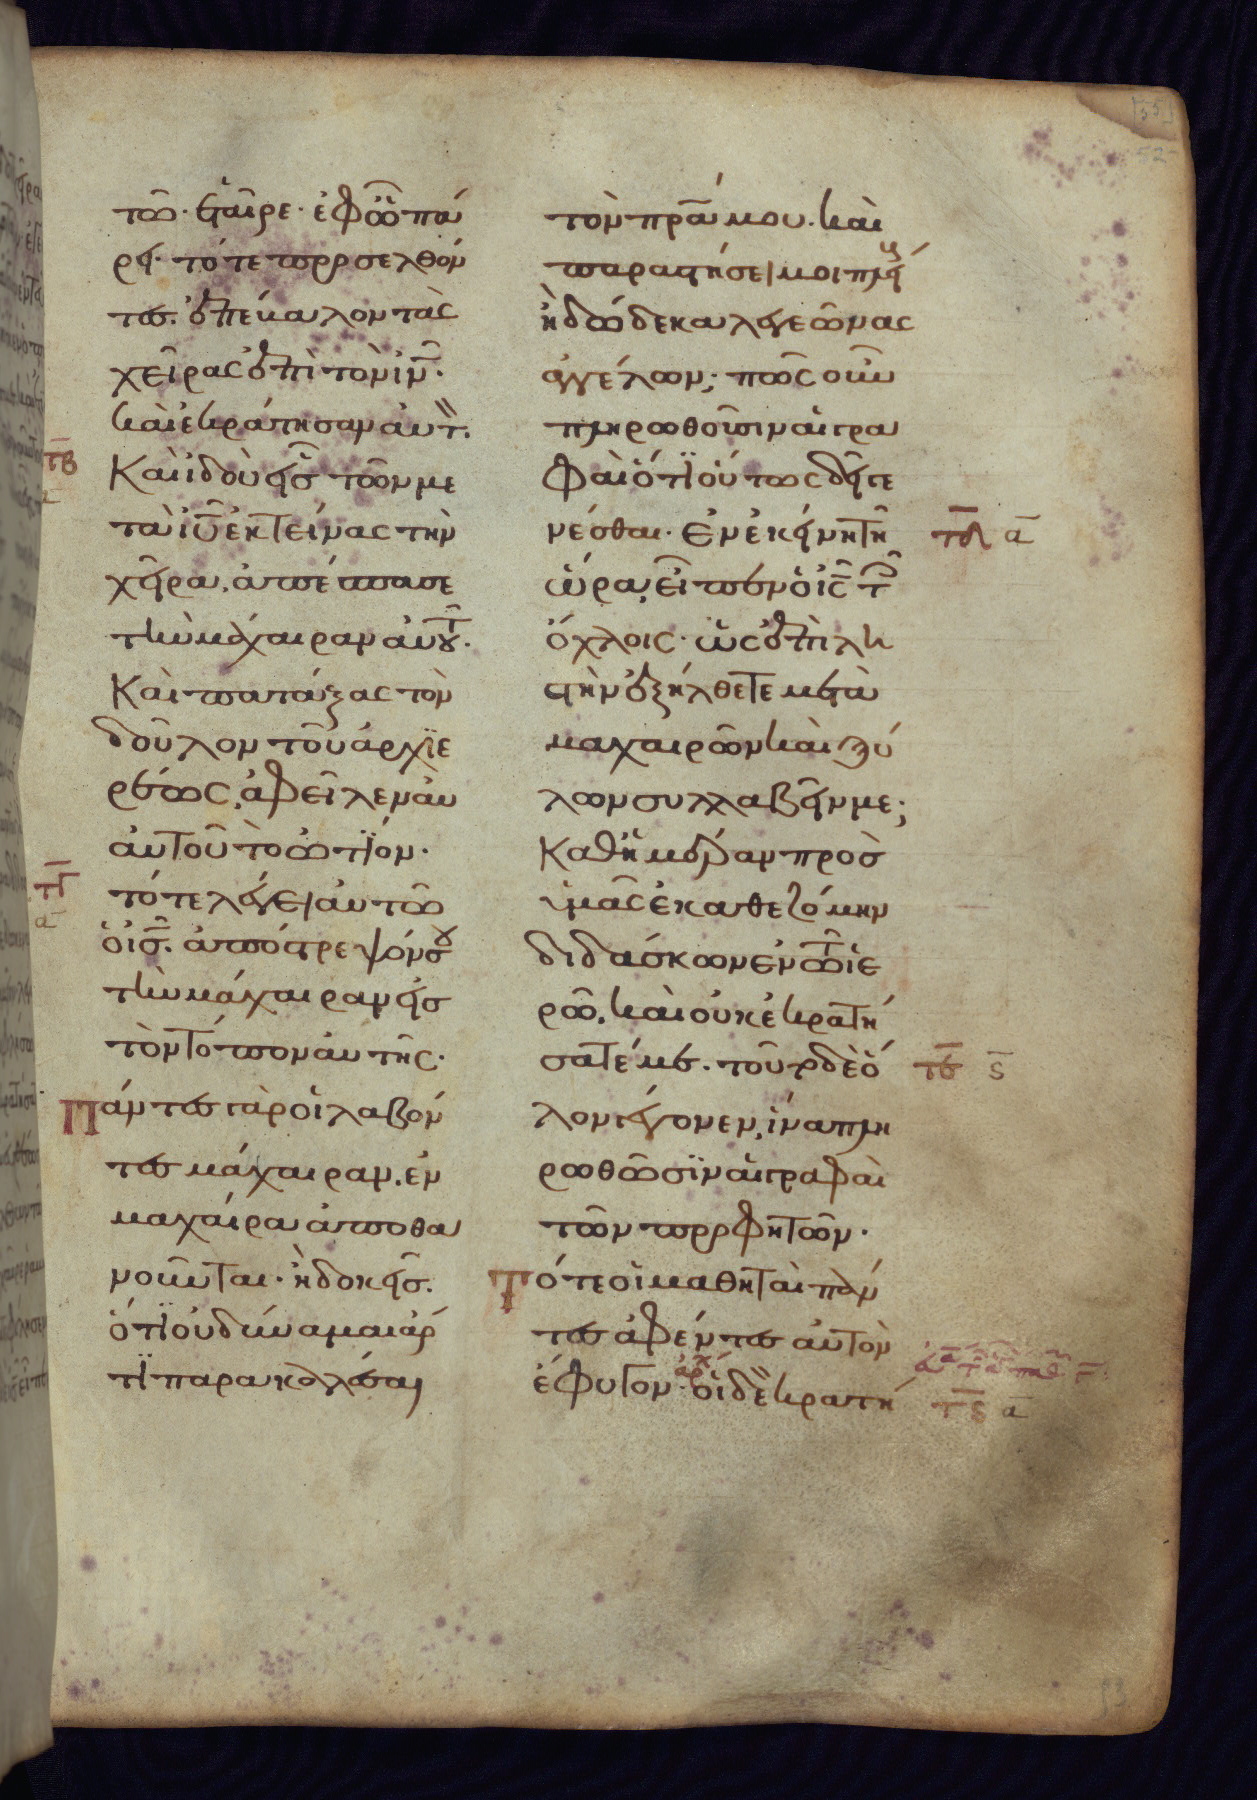 τῶ· ἑταῖρε· ἐφ ὧ πά
ρει· τότε προσελθόν
τες. ἐπέβαλον τὰς
χεῖρας ἐπὶ τὸν ιν·
καὶ ἐκράτησαν αὐτ.
Καὶ ἰδοὺ εἷς τῶν με
τὰ ιυ ἐκτείνας τὴν
χεῖρα, ἀπέσπασε
τὴν μάχαιραν αὐτου·
Καὶ πατάξας τὸν
δοῦλον τοῦ ἀρχιε
ρέως, ἀφεῖλεν αυ
αὐτοῦ τὸ ὠτίον·
τότε λέγει αὐτῶ
ὁ ις. ἀπόστρεψόν σου
τὴν μάχαιραν εἰς
τὸν τόπον αὐτῆς·
Πάντες γὰρ οἱ λαβόν
τες μάχαιραν, ἐν
μαχαίρα ἀποθα
νοῦνται· ἢ δοκεῖς.
ὅτι οὐ δύναμαι ἄρ
τι παρακαλέσαι
τὸν πρα μου. καὶ
παραστήσει μοι πλεί
ἢ δώδεκα λεγεῶνας
ἀγγέλων; πῶς οὖν
πληρωθῶσιν αἱ γρα
φαὶ ὅτι οὕτως δεῖ γε
νέσθαι· Ἐν ἐκείνη τῆ
ὥρα, εἶπεν ὁ ις τ
ὄχλοις· ὡς ἐπὶ λη
στὴν ἐξήλθετε μετὰ
μαχαιρῶν καὶ ξύ
λων συλλαβεῖν με;
Καθ ἡμέραν πρὸς
ὑμᾶς ἐκαθεζόμην
διδάσκων ἐν τῶ ἱε
ρῶ, καὶ οὐκ ἐκρατή
σατέ με. τοῦτο δὲ ὅ
λον γέγονεν, ἵνα πλη
ρωθῶσιν αἱ γραφαὶ
τῶν προφητῶν·
Τότε οἱ μαθηταὶ πάν
τες ἀφέντες αὐτὸν
ἔφυγον· ἀρχ οἱ δὲ κρατή
τβ
α
τγ
α
τδ α
τε ς
τς α